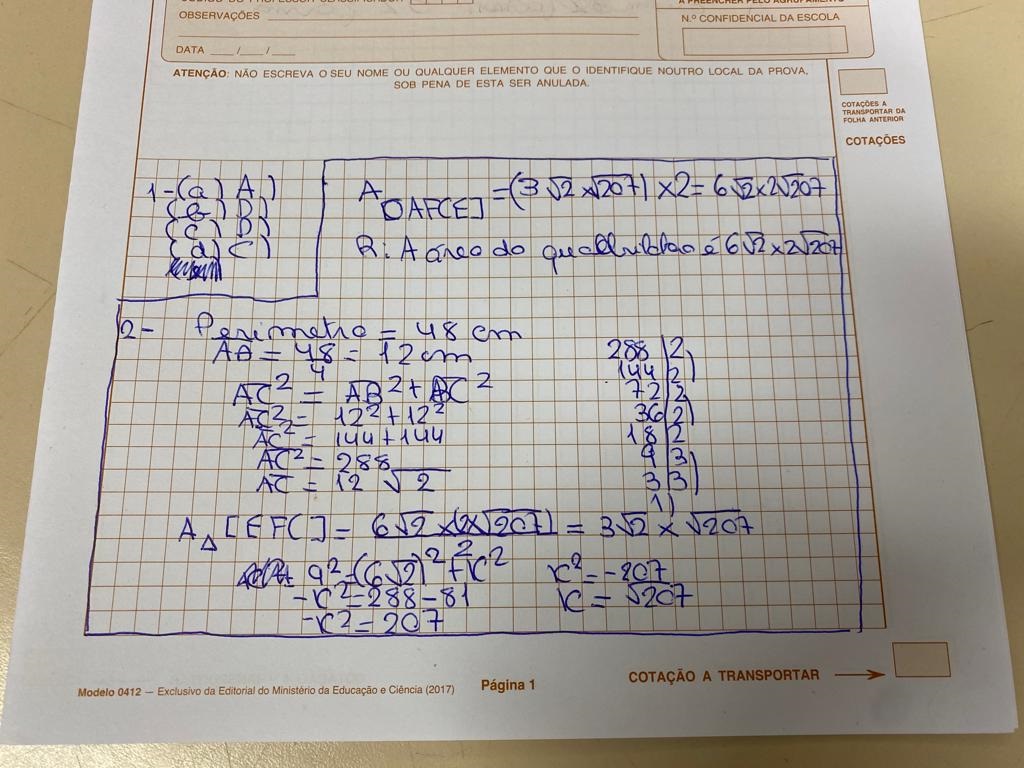 OBSERVAÇÕES
DATA ___/___/___
A PREENCHER PELO AGRUPAMENTO
N.º CONFIDENCIAL DA ESCOLA
ATENÇÃO: NÃO ESCREVA O SEU NOME OU QUALQUER ELEMENTO QUE O IDENTIFIQUE NOUTRO LOCAL DA PROVA,
SOB PENA DE ESTA SER ANULADA.
COTAÇÕES A
TRANSPORTAR DA
FOLHA ANTERIOR
COTAÇÕES
1-(a) A)
(b) D)
(c) D)
(d) C)
A [AFCE] = (3√2 × √207) × 2 = 6√2 × 2√207
R: A área do quadrilátero é 6√2 × 2√207
2- Perimetro = 48 cm
AB = 48/4 = 12 cm
AC² = AB² + BC²
AC² = 12² + 12²
AC² = 144 + 144
AC² = 288
AC = 12 √2
288 | 2
144 | 2)
72 | 2
36 | 2)
18 | 2
9 | 3
3 | 3)
1)
A△ [EFC] = 6√2 × (2×√207) / 2 = 3√2 × √207
9² = (6√2)² + x²
-x² = 288 - 81
-x² = 207
x² = -207
x = √207
Modelo 0412 — Exclusivo da Editorial do Ministério da Educação e Ciência (2017)
Página 1
COTAÇÃO A TRANSPORTAR